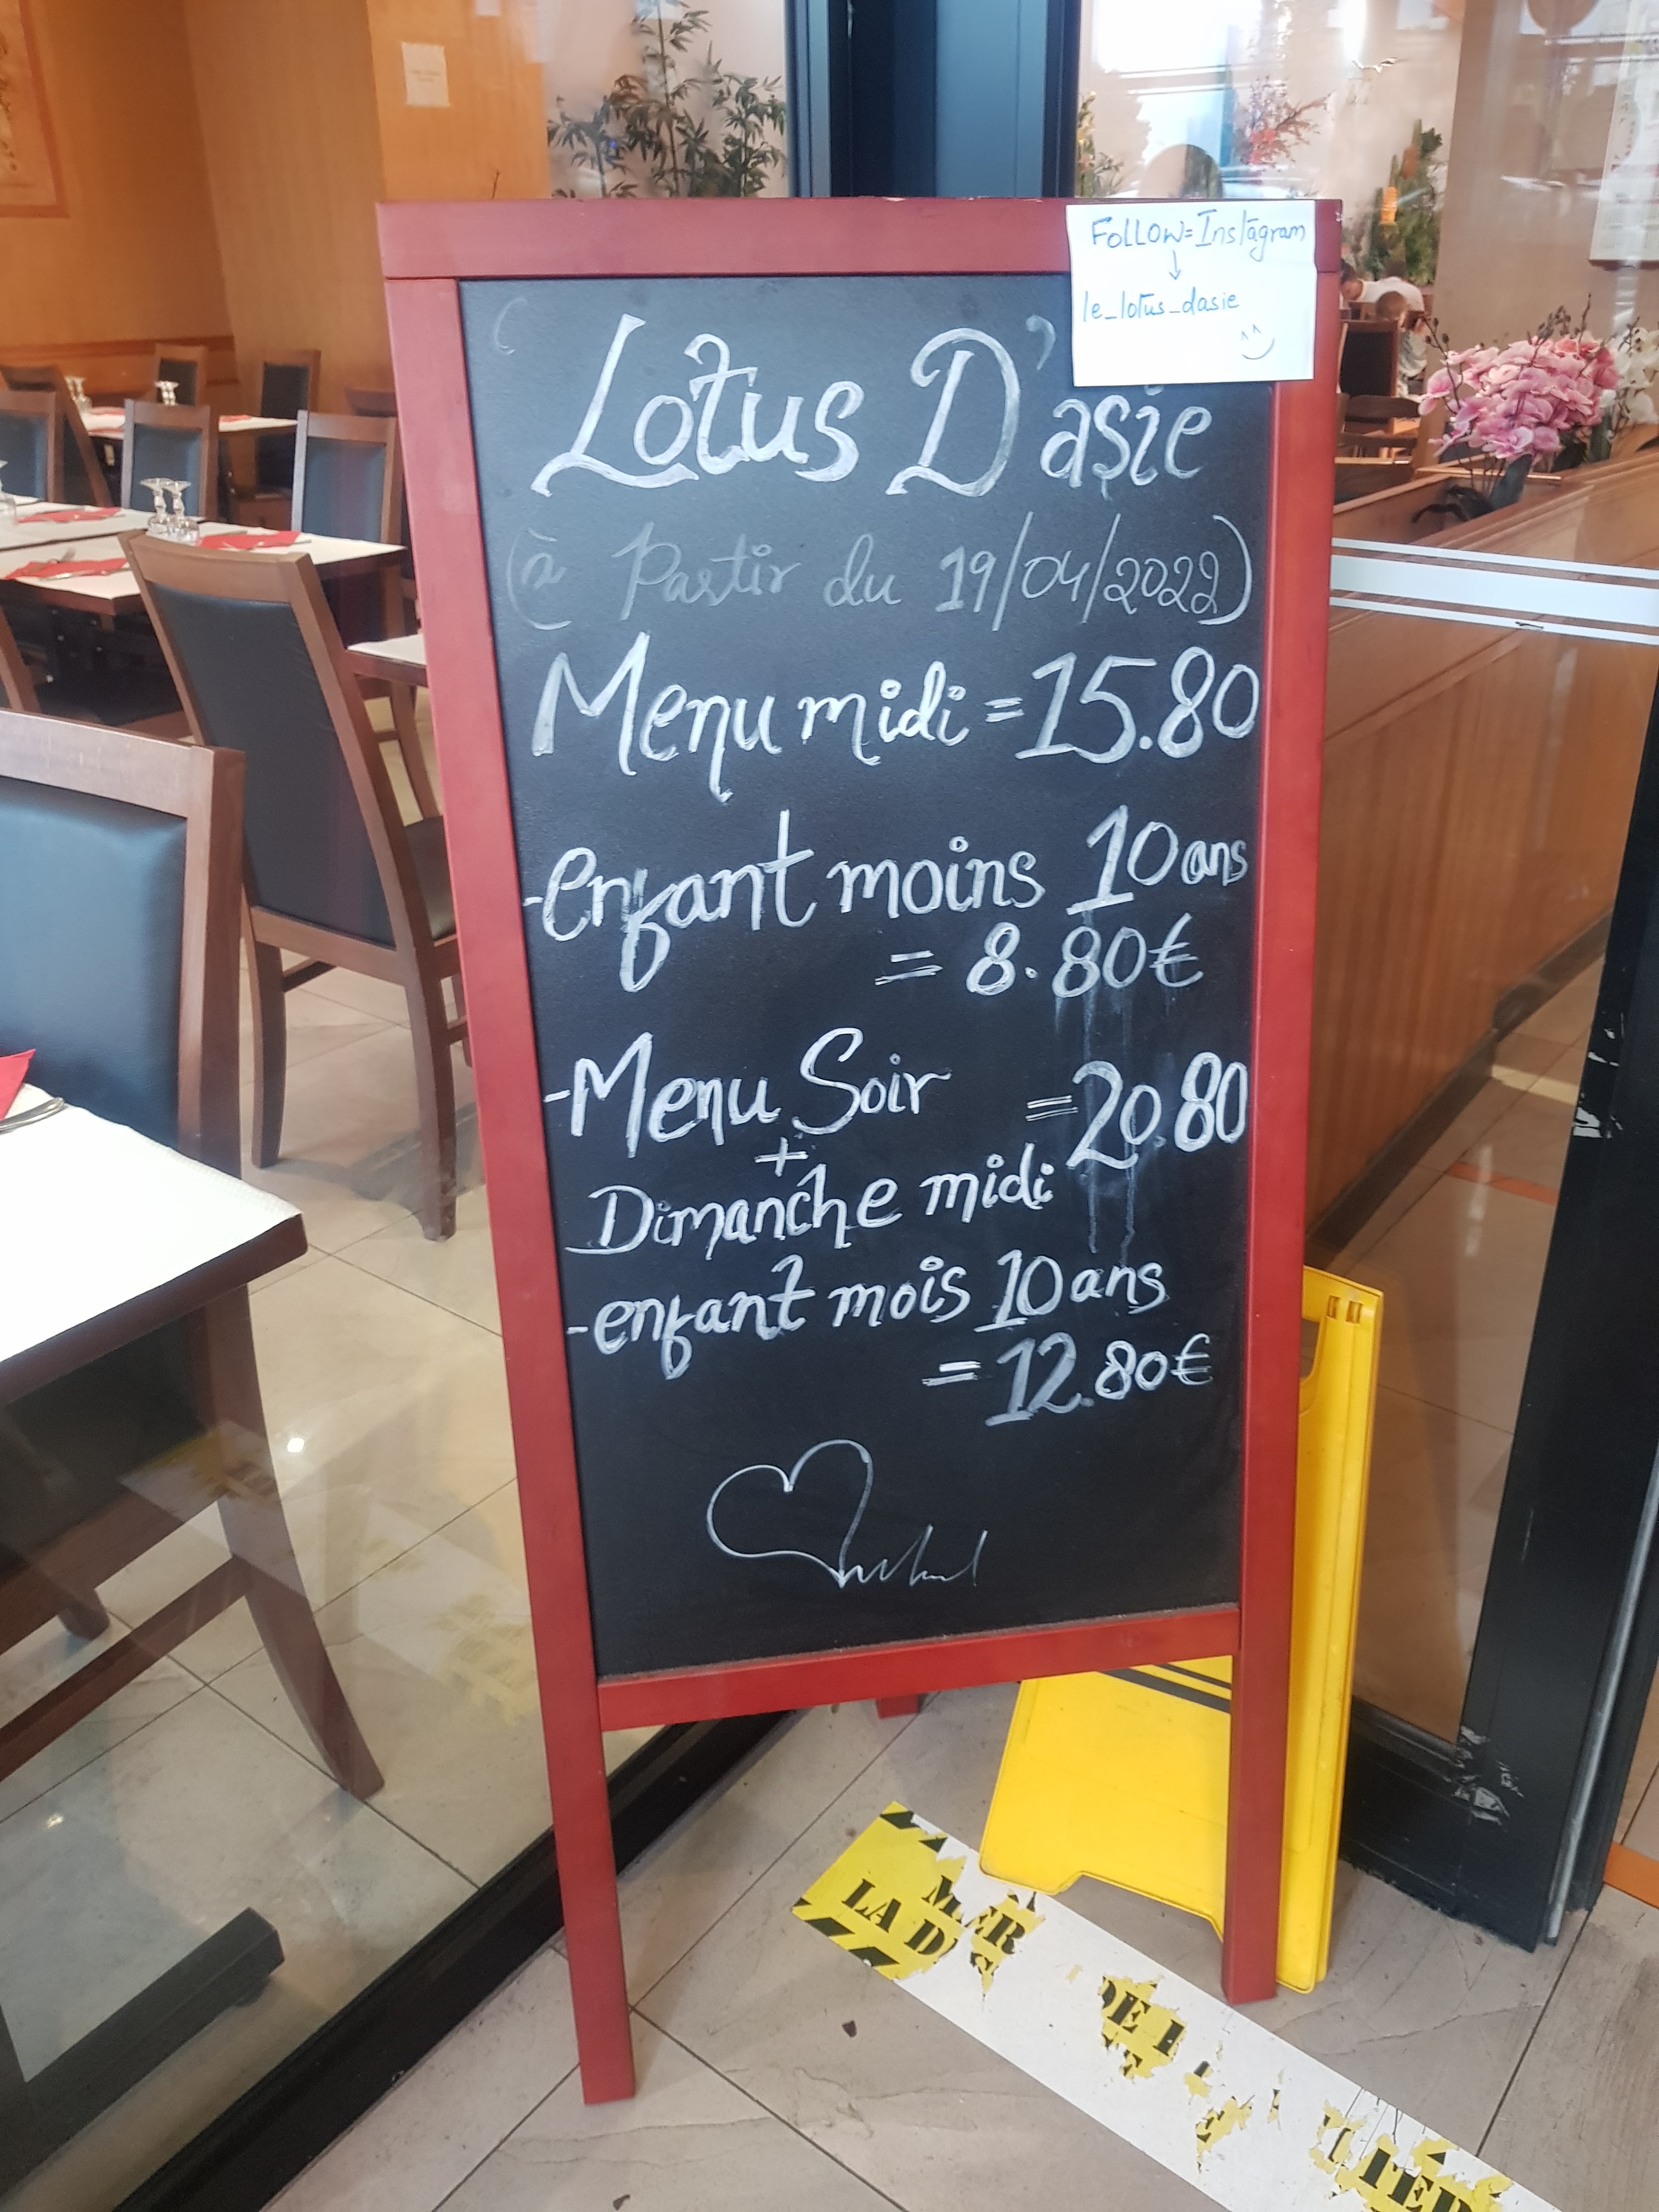 FOLLOW = Instagram
↓
le_lotus_dasie
^^
Lotus D'asie
(à Partir du 19/04/2022)
Menu midi = 15.80
-enfant moins 10 ans
= 8.80€
-Menu Soir = 20.80
+
Dimanche midi
-enfant mois 10 ans
= 12.80€
LA D